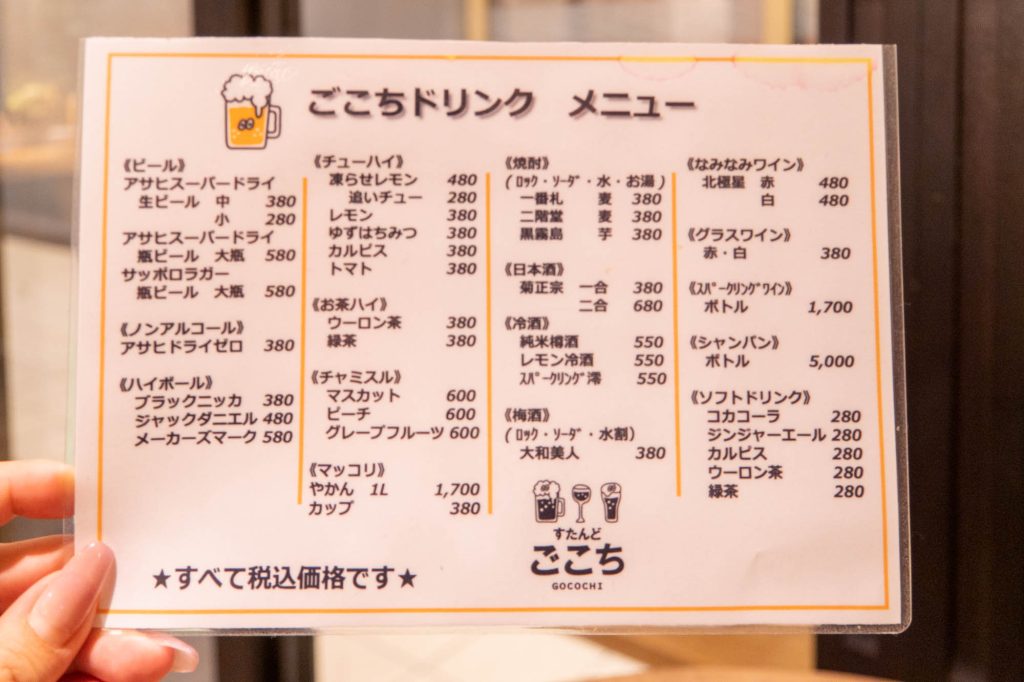 ごこちドリンク メニュー
《ビール》
アサヒスーパードライ
生ビール 中 380
小 280
アサヒスーパードライ
瓶ビール 大瓶 580
サッポロラガー
瓶ビール 大瓶 580
《ノンアルコール》
アサヒドライゼロ 380
《ハイボール》
ブラックニッカ 380
ジャックダニエル 480
メーカーズマーク 580
《チューハイ》
凍らせレモン 480
追いチュー 280
レモン 380
ゆずはちみつ 380
カルピス 380
トマト 380
《お茶ハイ》
ウーロン茶 380
緑茶 380
《チャミスル》
マスカット 600
ピーチ 600
グレープフルーツ 600
《マッコリ》
やかん 1L 1,700
カップ 380
《焼酎》
(ﾛｯｸ・ｿｰﾀﾞ・水・お湯)
一番札 麦 380
二階堂 麦 380
黒霧島 芋 380
《日本酒》
菊正宗 一合 380
二合 680
《冷酒》
純米樽酒 550
レモン冷酒 550
ｽﾊﾟｰｸﾘﾝｸﾞ澪 550
《梅酒》
(ﾛｯｸ・ｿｰﾀﾞ・水割)
大和美人 380
《なみなみワイン》
北極星 赤 480
白 480
《グラスワイン》
赤・白 380
《ｽﾊﾟｰｸﾘﾝｸﾞﾜｲﾝ》
ボトル 1,700
《シャンパン》
ボトル 5,000
《ソフトドリンク》
コカコーラ 280
ジンジャーエール 280
カルピス 280
ウーロン茶 280
緑茶 280
すたんど
ごこち
GOCOCHI
★すべて税込価格です★